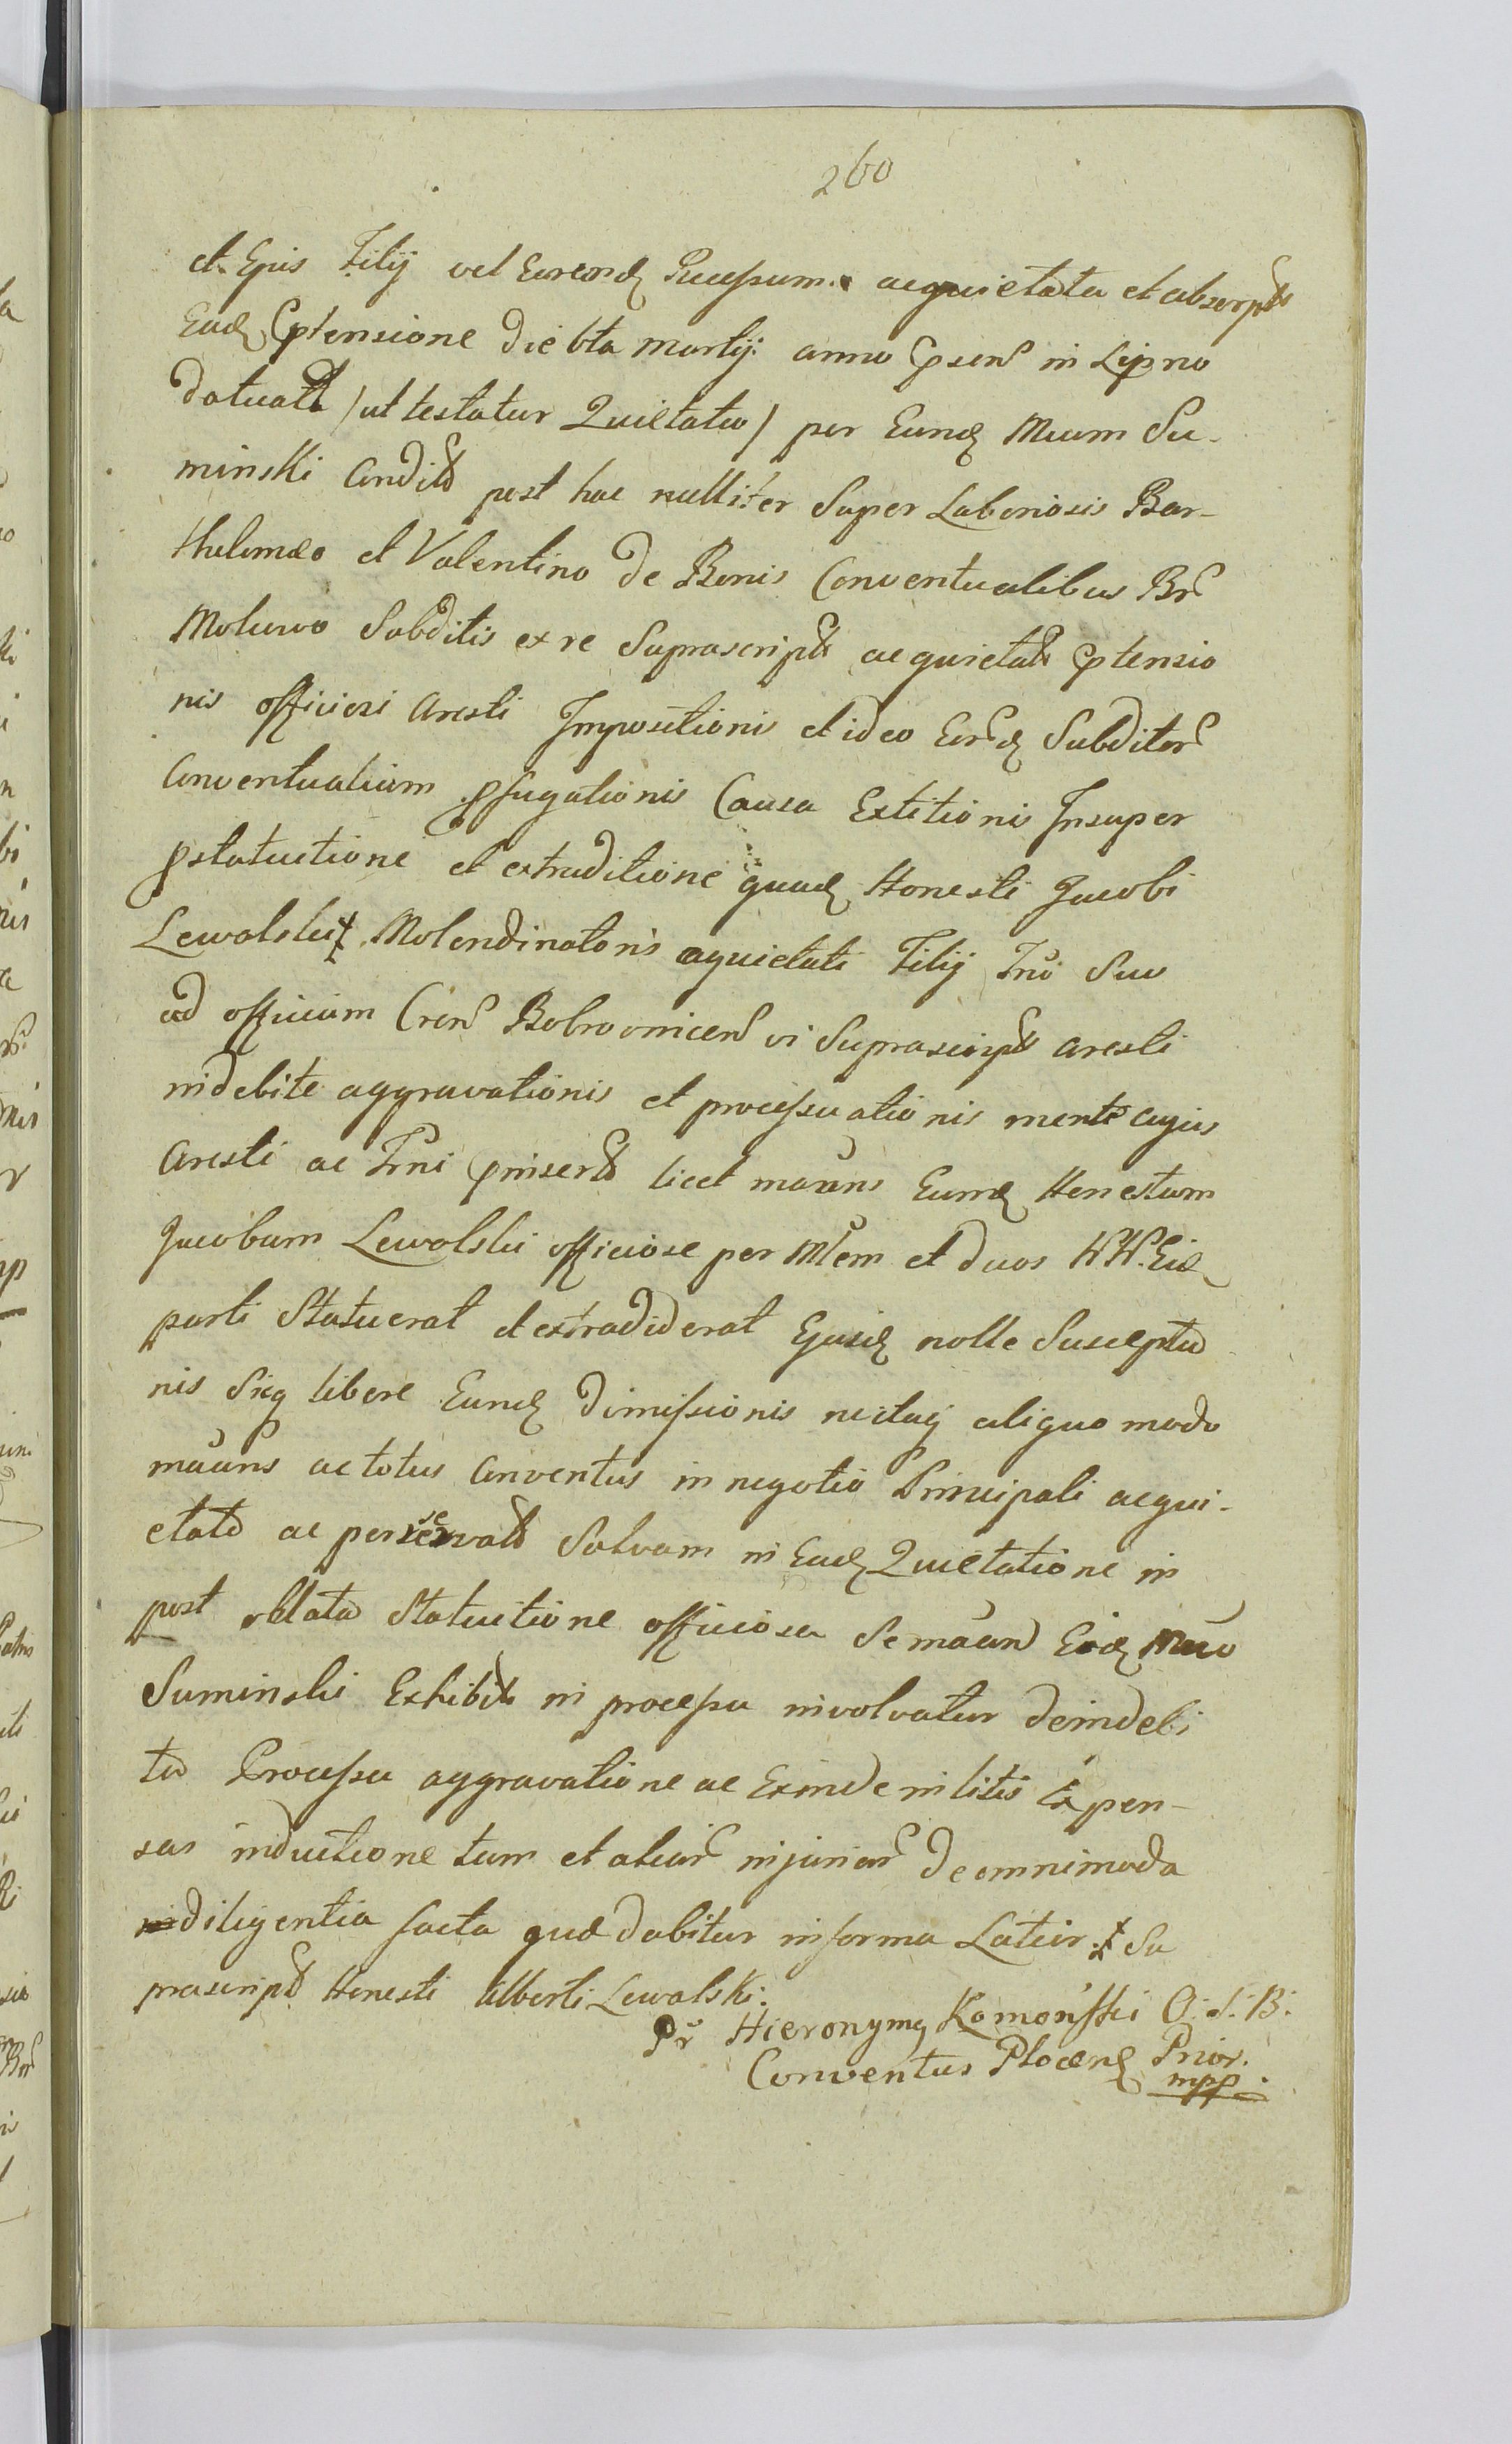 260
et Ejus Filij vel Eorend Pecussum. acquietata et absorpta
Ead Cptensione Die 6ta martij: anno Cpsens in Lipno
datuata /ut testatur Quietatio/ per Eund Mcum Su-
minski Condita post hac nulliter Super Laboriosis Bar-
tholomæo et Valentino de Bonis Conventualibus Br
Mokowo Subditis ex re Suprascripta acquietata Cptensio
nis officiosi Aresti Impositionis et ideo Eord Subditor
Conventualium pfugationis Causa Extitionis Insuper
pstatuitione et extraditione quad Honesti Jacobi
Lewalski Molendinatoris aquietati Filij Trii Suo
ad officium Crens Bobrovnicens vi Suprascripta aresti
indebite aggravationis et processuationis mente cujus
Aresti ac Trni Cpinserta licet maans Eund Honestum
Jacobum Lewalski officiose per Mlem et duos NN. Eid
parti Statuerat et extradiderat Ejusd nolle Suscepto
nis Sicq libere Eund Dimissionis ne itaq aliquo modo
maans ac totus Conventus in negotio Principali acqui-
etato ac perseervato Salvam in Ead Quietatione in
post oblata Statuitione officiosa Se maand Eid Mco
Suminski Exhibita in processu involvatur de indebi
to Processu aggravatione ac Exinde in litis Expen-
sas inductione tum et aliar injuriar de omnimoda
diligentia facta quæ dabitur in forma Latior. Su
prascripta Honesti Alberti Lewalski.
Pr Hieronymq Komoński O: S: B:
Conventus Plocens Prior.
mpp.